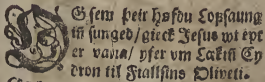 OG sem þeir høfdu Lofsaung
iñ sunged / gieck Jesus wt ept
er vana / yfer vm Lækiñ Cy
dron til Fiallsins Oliveti.